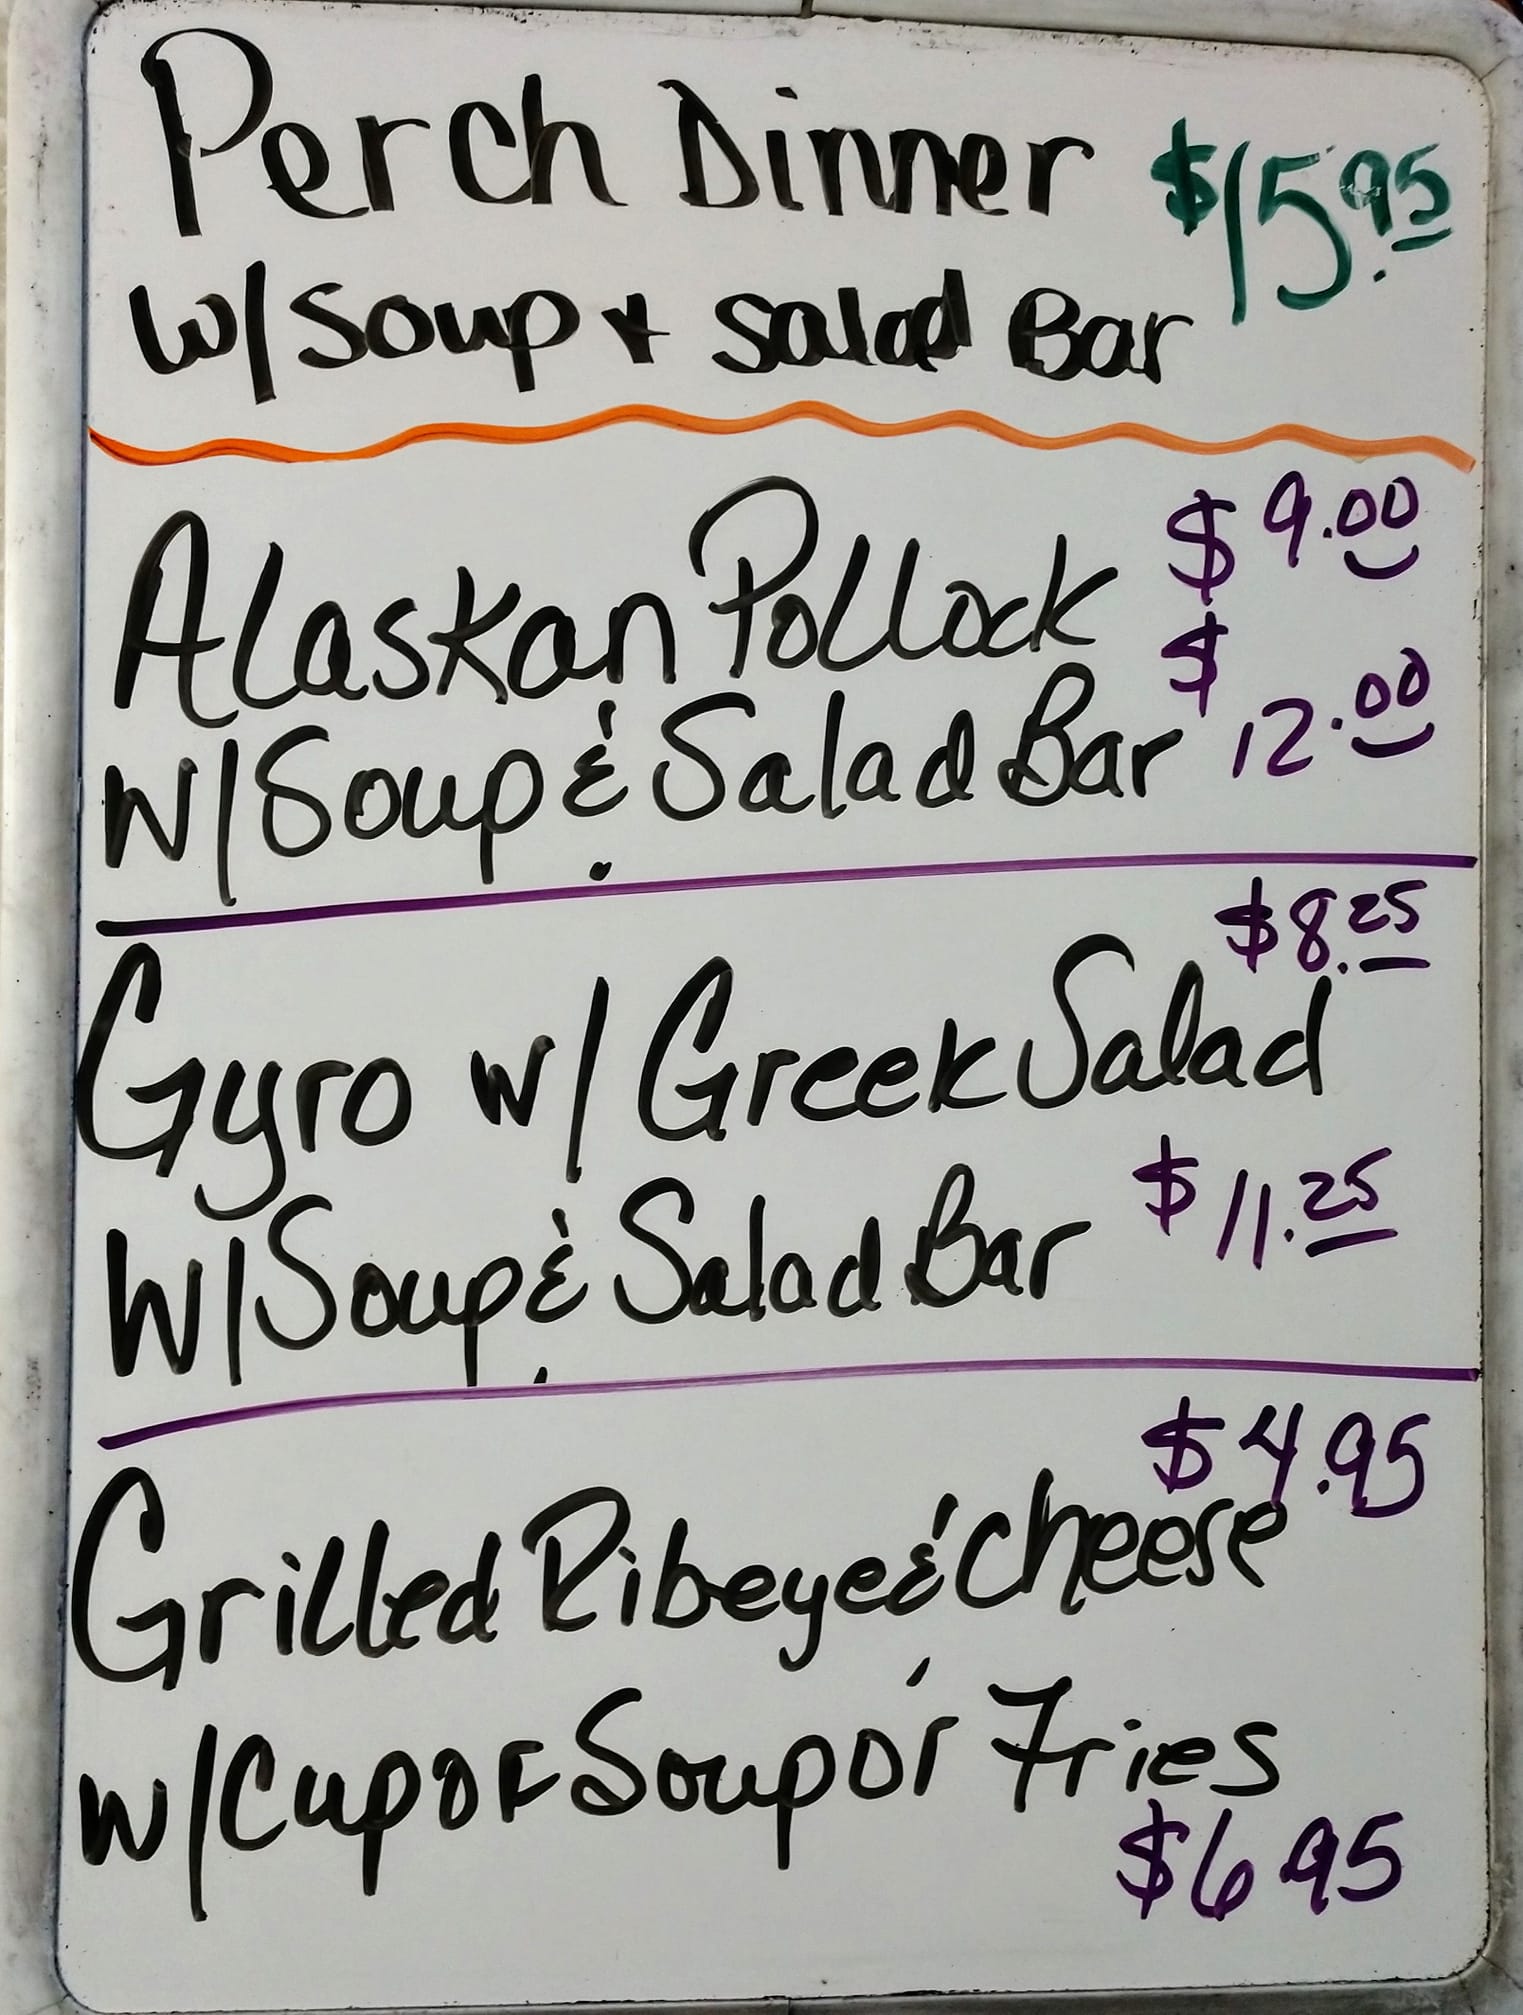 Perch Dinner $15.95
w/ Soup & Salad Bar
Alaskan Pollock $9.00
w/ Soup & Salad Bar $12.00
$8.25
Gyro w/ Greek Salad
w/ Soup & Salad Bar $11.25
$4.95
Grilled Ribeye & Cheese
w/ Cup of Soup or Fries
$6.95